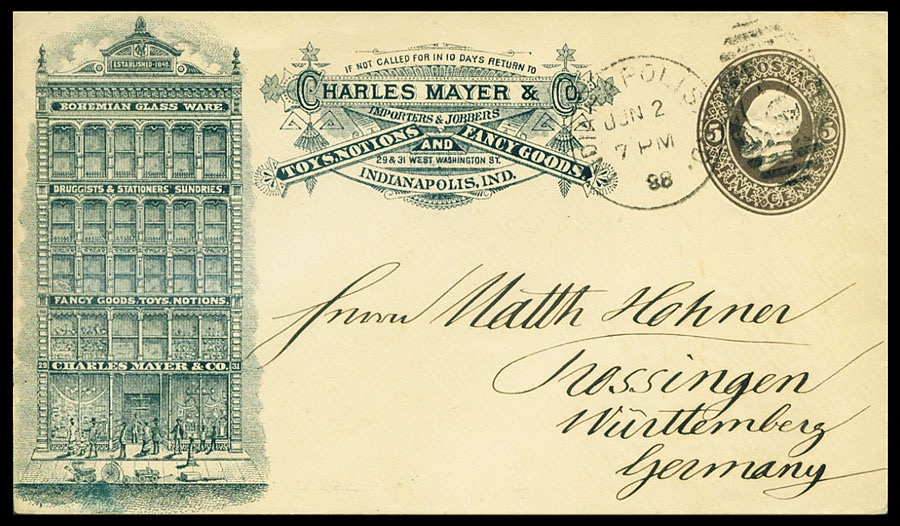 ESTABLISHED 1840.
BOHEMIAN GLASS WARE.
DRUGGISTS & STATIONERS' SUNDRIES.
FANCY GOODS, TOYS, NOTIONS.
29 CHARLES MAYER & CO. 31
IF NOT CALLED FOR IN 10 DAYS RETURN TO
CHARLES MAYER & CO.
IMPORTERS & JOBBERS
TOYS, NOTIONS AND FANCY GOODS.
29 & 31 WEST WASHINGTON ST.
INDIANAPOLIS, IND.
INDIANAPOLIS
JUN 2
7 PM
88
U.S. POSTAGE
5 5
Herrn Matth Hohner
Trossingen
Württemberg
Germany